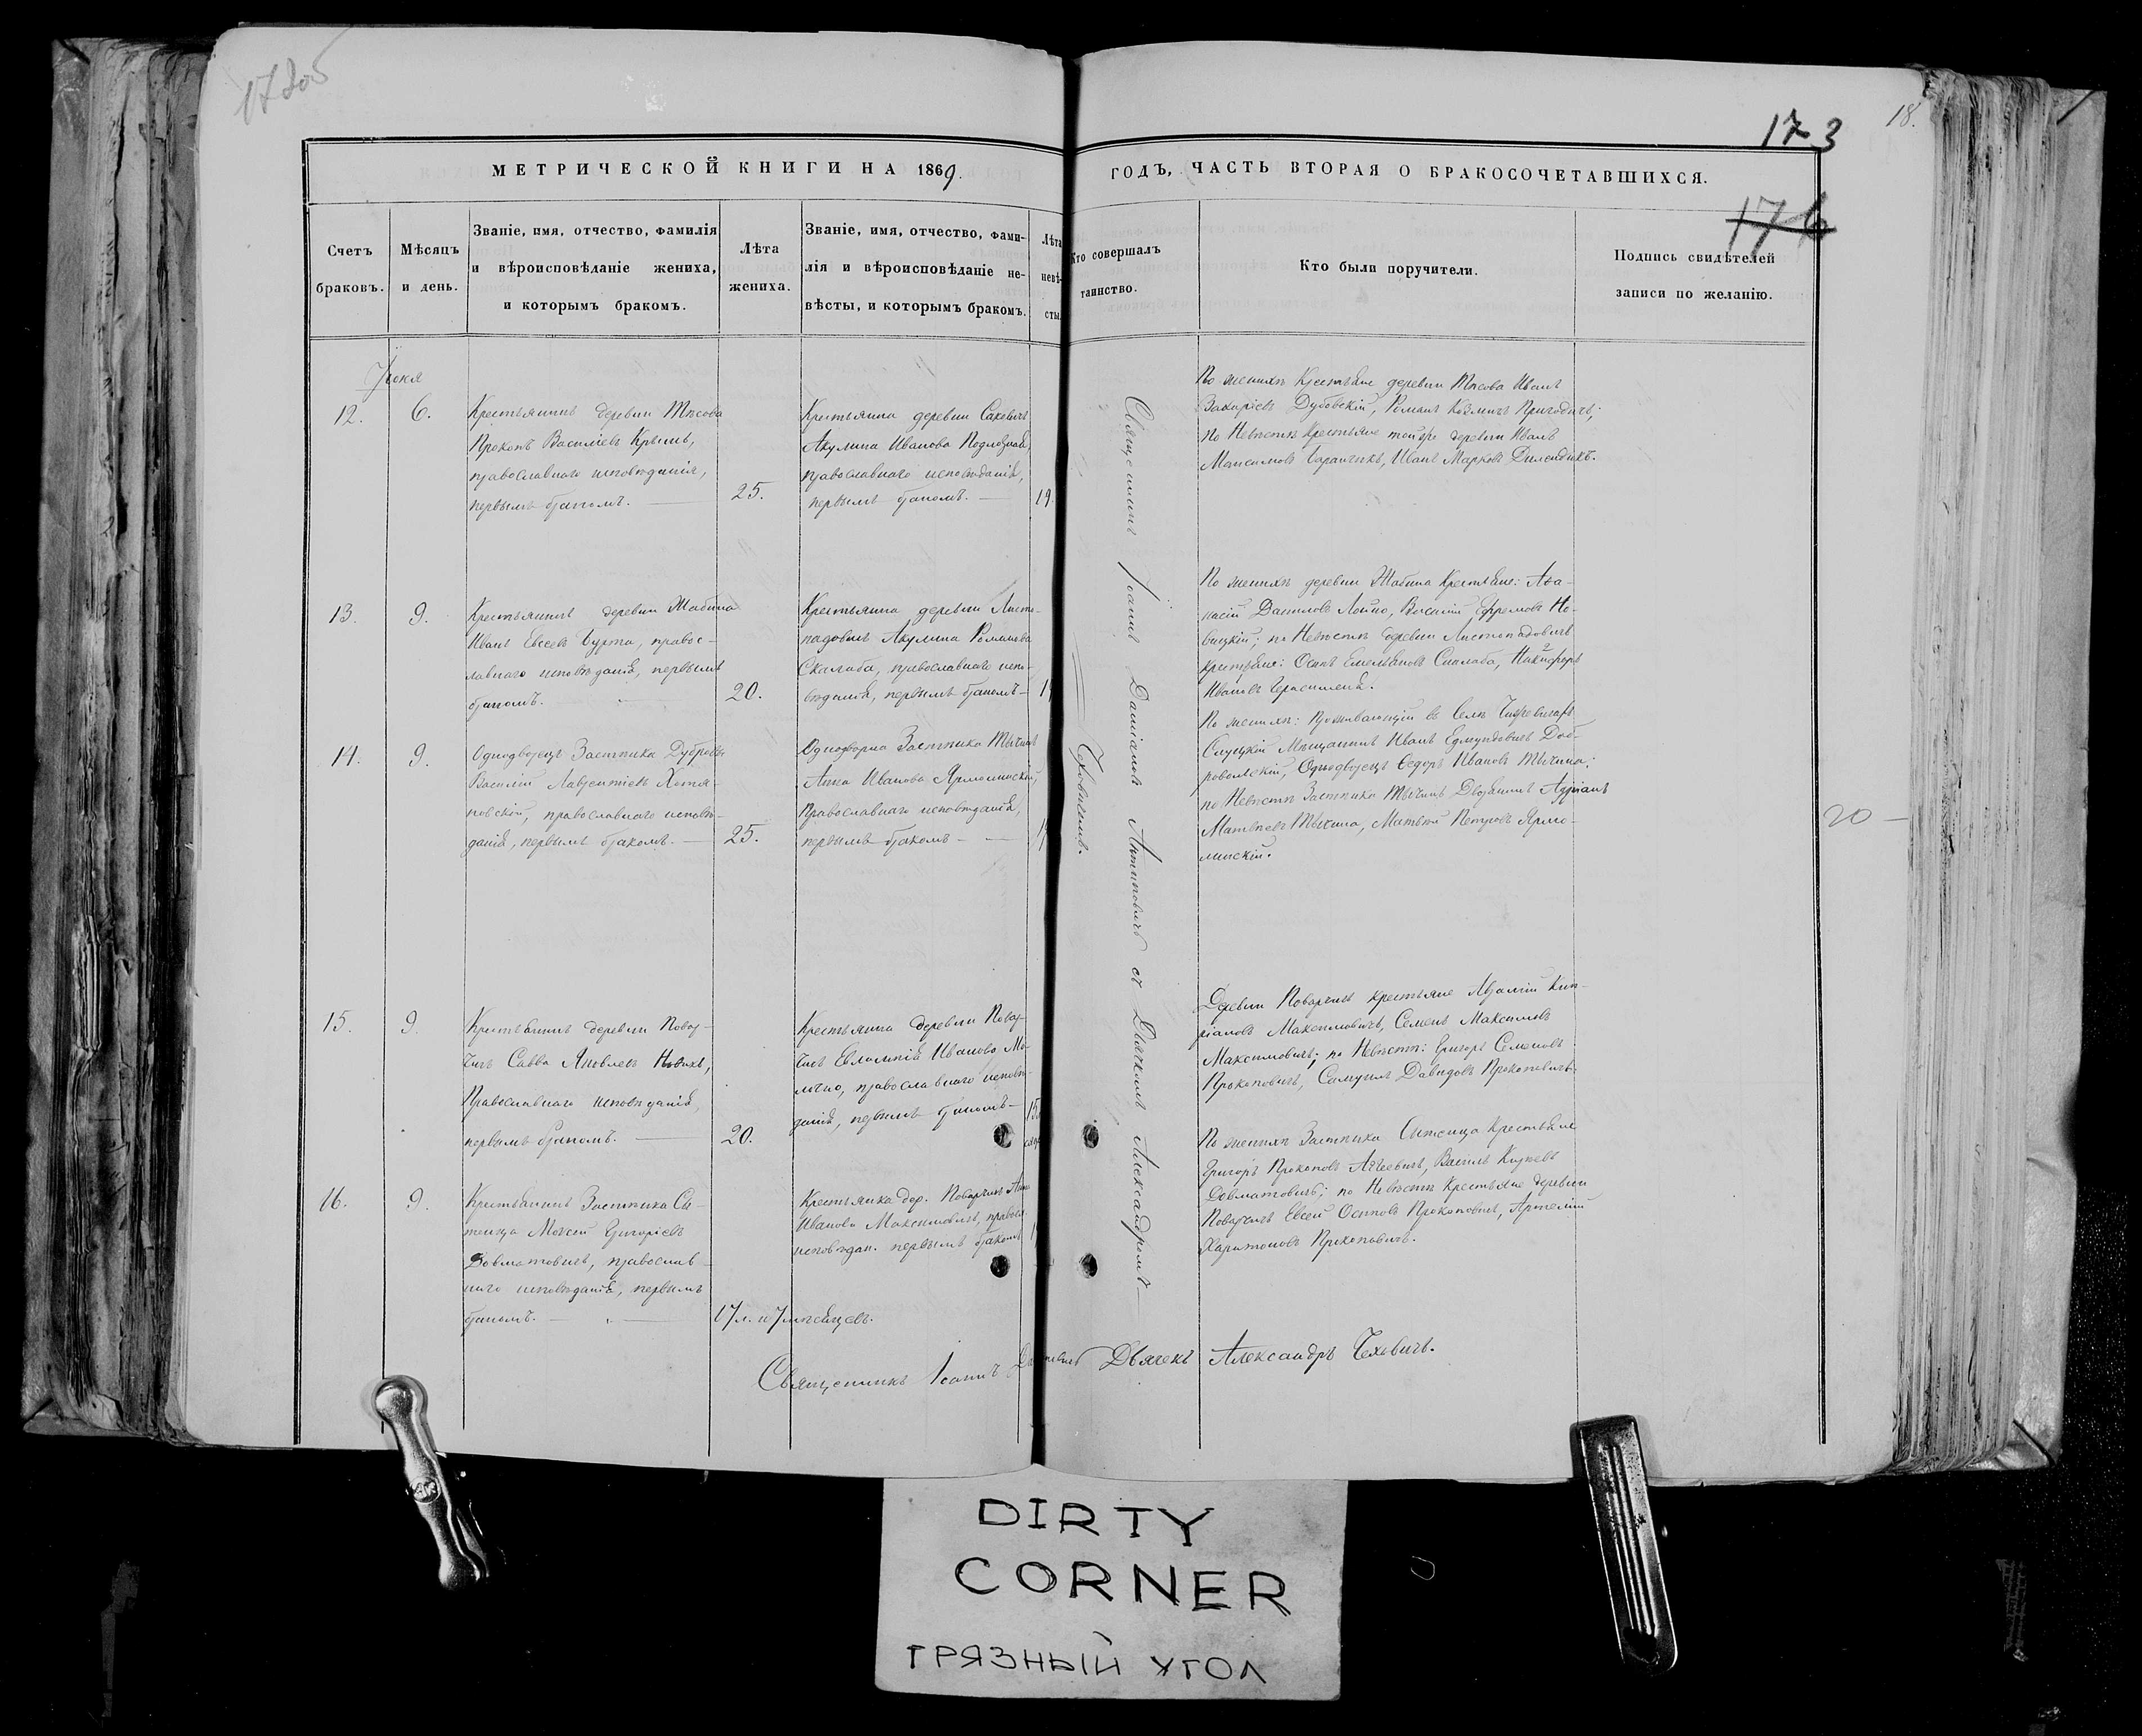 173
18.
МЕТРИЧЕСКОЙ КНИГИ НА 1869.
ГОДЪ, ЧАСТЬ ВТОРАЯ О БРАКОСОЧЕТАВШИХСЯ.
176
Счетъ
браковъ.
Мѣсяцъ
и день.
Званіе, имя, отчество, фамилія
и вѣроисповѣданіе жениха,
и которымъ бракомъ.
Лѣта
жениха.
Званіе, имя, отчество, фами-
лія и вѣроисповѣданіе не-
вѣсты, и которымъ бракомъ.
Лѣта
невѣ-
сты.
Кто совершалъ
таинство.
Кто были поручители.
Подпись свидѣтелей
записи по желанію.
12.
6.
Крестьянинъ деревни Тѣсова
Прокопъ Василіевъ Крылъ,
православнаго исповѣданія,
первымъ бракомъ.
25.
Крестьянка деревни
Акулина Иванова
православнаго исповѣданія,
первымъ бракомъ.
19.
По женихѣ Крестьяне деревни Тѣсова Иванъ
Захаріевъ Дубовскій, Романъ Козмичъ Пригодичъ;
по Невѣстѣ Крестьяне той же деревни Иванъ
Максимовъ Баранчикъ, Иванъ Марковъ
13.
9.
Крестьянинъ деревни Жабина
Иванъ Евсеевъ Бурта, правос-
лавнаго исповѣданія, первымъ
бракомъ.
20.
Крестьянка деревни Листо-
падовичъ Акулина Романова
Скалаба, православнаго испо-
вѣданія, первымъ бракомъ
По женихѣ деревни Жабина Крестьяне: Афа-
насій Даниловъ Лойко, Василій Ефремовъ Но-
вицкій; по Невѣстѣ деревни Листопадовичъ
крестьяне: Осипъ Емельяновъ Скалаба, Никифоръ
Ивановъ Герасименя.
14.
9.
Однодворецъ Застѣнка Дубровы
Василій Лаврентіевъ Хотя-
новскій, православнаго исповѣ-
данія, первымъ бракомъ.
25.
Однодворка Застѣнка Тычинъ
Анна Иванова Ярмолинская,
Православнаго исповѣданія,
первымъ бракомъ
По женихѣ: проживающій въ Селѣ Чижевичахъ
Слуцкій Мѣщанинъ Иванъ Едмундовичъ Доб-
ровольскій, Однодворецъ Ѳедоръ Ивановъ Тычина;
по Невѣстѣ Застѣнка Тычинъ Дворянинъ Адріанъ
Матвѣевъ Тычина, Матвѣй Петровъ Ярмо-
линскій.
20
15.
9.
Крестьянинъ деревни Повар-
чицъ Савва Яковлевъ Новикъ,
Православнаго исповѣданія,
первымъ бракомъ.
20.
Крестьянка деревни Повар-
чицъ Евлампія Иванова
православнаго исповѣ-
данія, первымъ бракомъ
15.
Деревни Поварчицъ крестьяне Авраамій Кип-
ріановъ Максимовичъ, Семенъ Максимовъ
Максимовичъ; по Невѣстѣ: Григоръ Семеновъ
Прокоповичъ, Самуилъ Давидовъ Прокоповичъ.
16.
9.
Крестьянинъ Застѣнка Сы-
тенца Моѵсей Григоріевъ
Довматовичъ, православ-
наго исповѣданія, первымъ
бракомъ.
17 л. и 7 мѣсяцевъ.
Крестьянка дер. Поварчицъ Анна
Иванова Максимовичъ, правосл.
исповѣдан. первымъ бракомъ
По женихѣ Застѣнка Сытенца Крестьяне
Григоръ Прокоповъ Василь
Довматовичъ; по Невѣстѣ Крестьяне деревни
Поварчицъ Евсей Осиповъ Прокоповичъ, Артемій
Харитоновъ Прокоповичъ.
Священникъ Іоаннъ Даміановъ Антиповичъ съ Дьячкомъ Александромъ
Чеховичемъ.
Священникъ Іоаннъ
Дьячекъ Александръ Чеховичъ.
DIRTY
CORNER
ГРЯЗНЫЙ УГОЛ